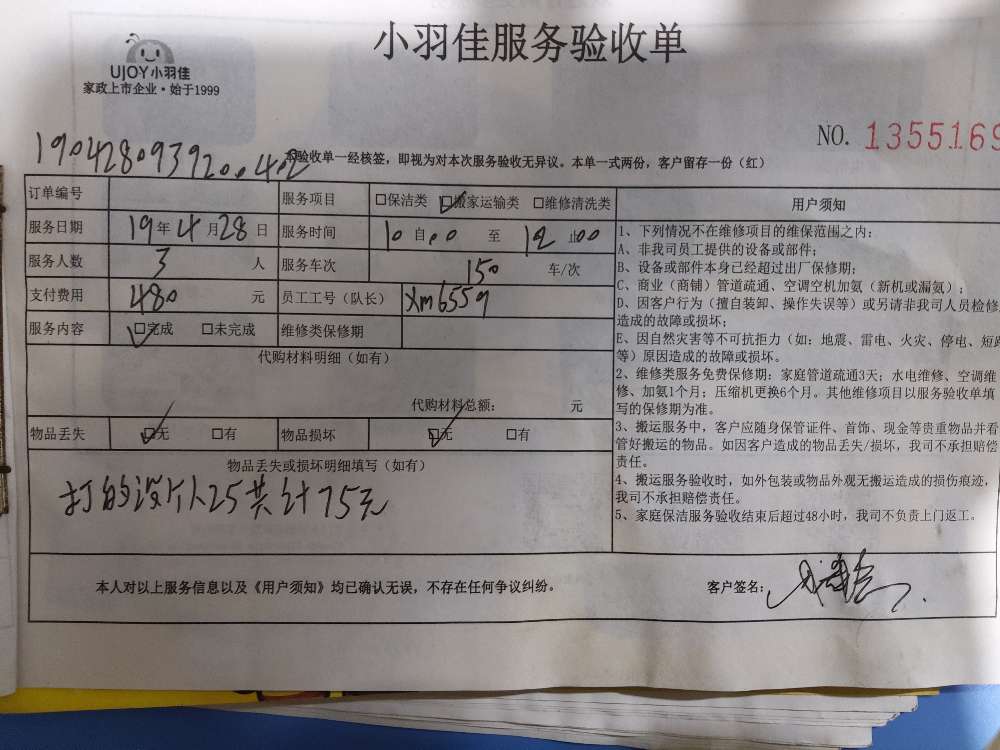 小羽佳服务验收单
UJOY小羽佳
家政上市企业·始于1999
NO. 1355169
1904280939200402
本验收单一经核签，即视为对本次服务验收无异议。本单一式两份，客户留存一份（红）
订单编号 服务项目 □保洁类 □搬家运输类 □维修清洗类
服务日期 19年4月28日 服务时间 10自00至12止00
服务人数 3人 服务车次 150车/次
支付费用 480元 员工工号（队长） Xm6559
服务内容 □完成 □未完成 维修类保修期
代购材料明细（如有）
代购材料总额： 元
物品丢失 □无 □有 物品损坏 □无 □有
物品丢失或损坏明细填写（如有）
打的没个人25共计75元
用户须知
1、下列情况不在维修项目的维保范围之内：
A、非我司员工提供的设备或部件；
B、设备或部件本身已经超过出厂保修期；
C、商业（商铺）管道疏通、空调空机加氨（新机或漏氨）；
D、因客户行为（擅自装卸、操作失误等）或另请非我司人员检修
造成的故障或损坏；
E、因自然灾害等不可抗拒力（如：地震、雷电、火灾、停电、短路
等）原因造成的故障或损坏。
2、维修类服务免费保修期：家庭管道疏通3天；水电维修、空调维
修、加氨1个月；压缩机更换6个月。其他维修项目以服务验收单填
写的保修期为准。
3、搬运服务中，客户应随身保管证件、首饰、现金等贵重物品并看
管好搬运的物品。如因客户造成的物品丢失/损坏，我司不承担赔偿
责任。
4、搬运服务验收时，如外包装或物品外观无搬运造成的损伤痕迹，
我司不承担赔偿责任。
5、家庭保洁服务验收结束后超过48小时，我司不负责上门返工。
本人对以上服务信息以及《用户须知》均已确认无误，不存在任何争议纠纷。
客户签名：